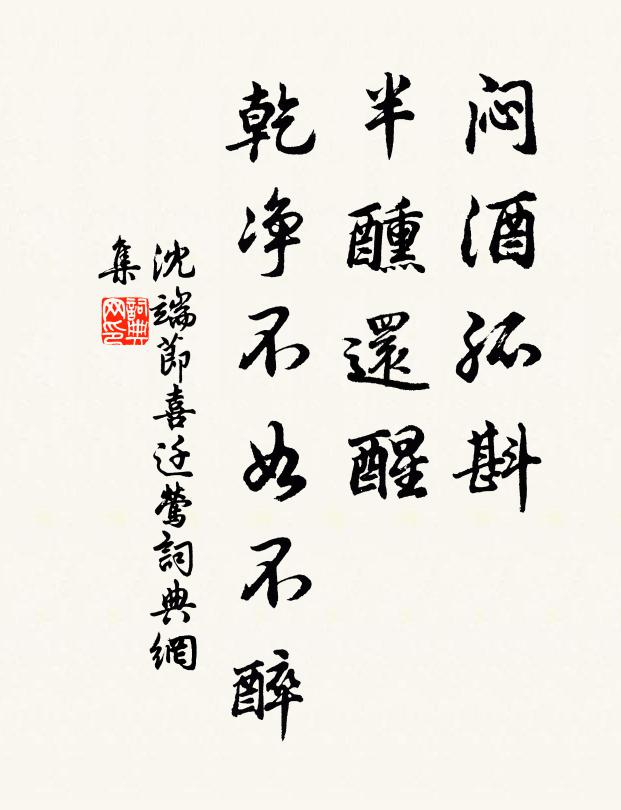 闷酒孤斟
半醺還醒
乾净不如不醉
沈端節喜迁鶯詞典網
集
詞典
网印